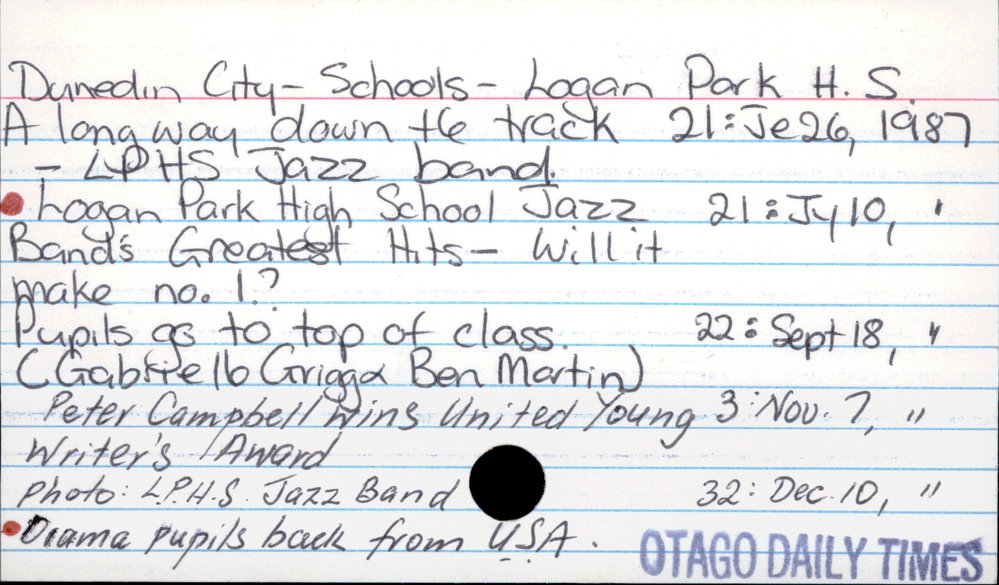 Dunedin City - Schools - Logan Park H. S.
A long way down the track 21: Je 26, 1987
- LPHS Jazz band.
• Logan Park High School Jazz 21: Jy 10, "
Band's Greatest Hits - Will it
make no. 1.?
Pupils go to top of class. 22: Sept 18, "
(Gabrielle Grigg & Ben Martin)
Peter Campbell wins United Young 3: Nov. 7, "
Writer's Award
Photo: L.P.H.S. Jazz Band 32: Dec. 10, "
• Drama pupils back from USA.
OTAGO DAILY TIMES